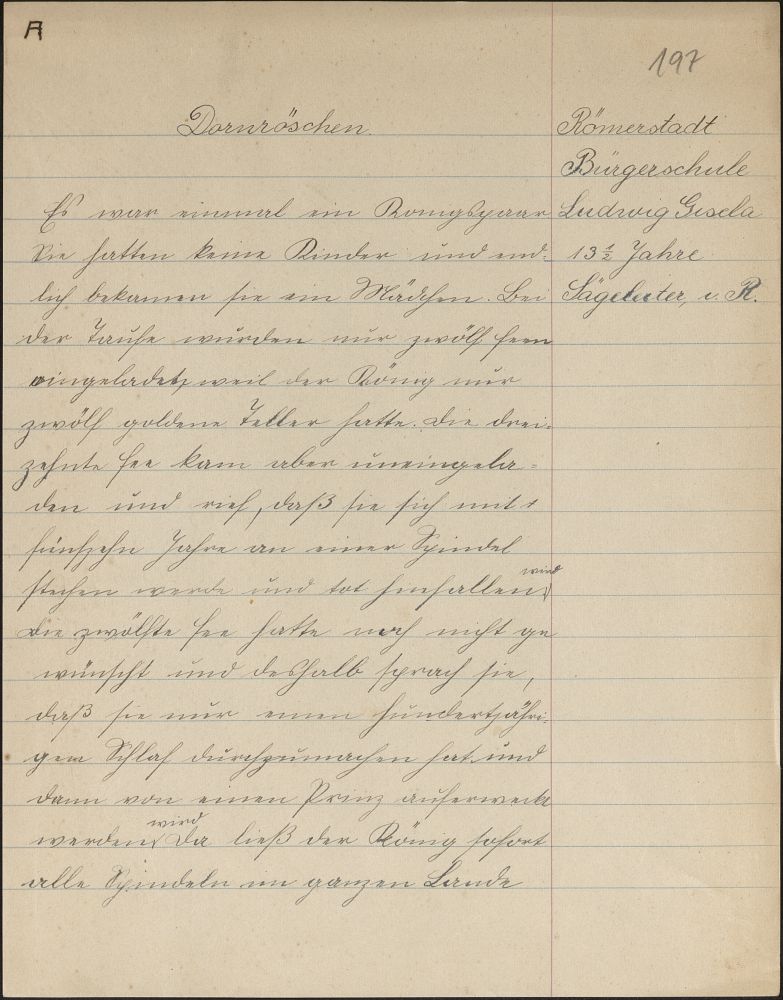 A
197
Dornröschen.
Römerstadt
Bürgerschule
Ludwig Gisela
13½ Jahre
i. R.
Es war einmal ein Königspaar
Sie hatten keine Kinder und end-
lich bekamen sie ein Mädchen. Bei
der Taufe wurden nur zwölf Feen
eingeladet, weil der König nur
zwölf goldene Teller hatte. Die drei-
zehnte Fee kam aber uneingela-
den und rief, daß sie sich mit
fünfzehn Jahre an einer Spindel
stechen werde und tot hinfallen wird
Die zwölfte Fee hatte noch nicht ge
wünscht und deshalb sprach sie,
daß sie nur einen hundertjähri-
gem Schlaf durchzumachen hat und
dann von einen Prinz auferweckt
werden wird Da ließ der König sofort
alle Spindeln im ganzen Lande